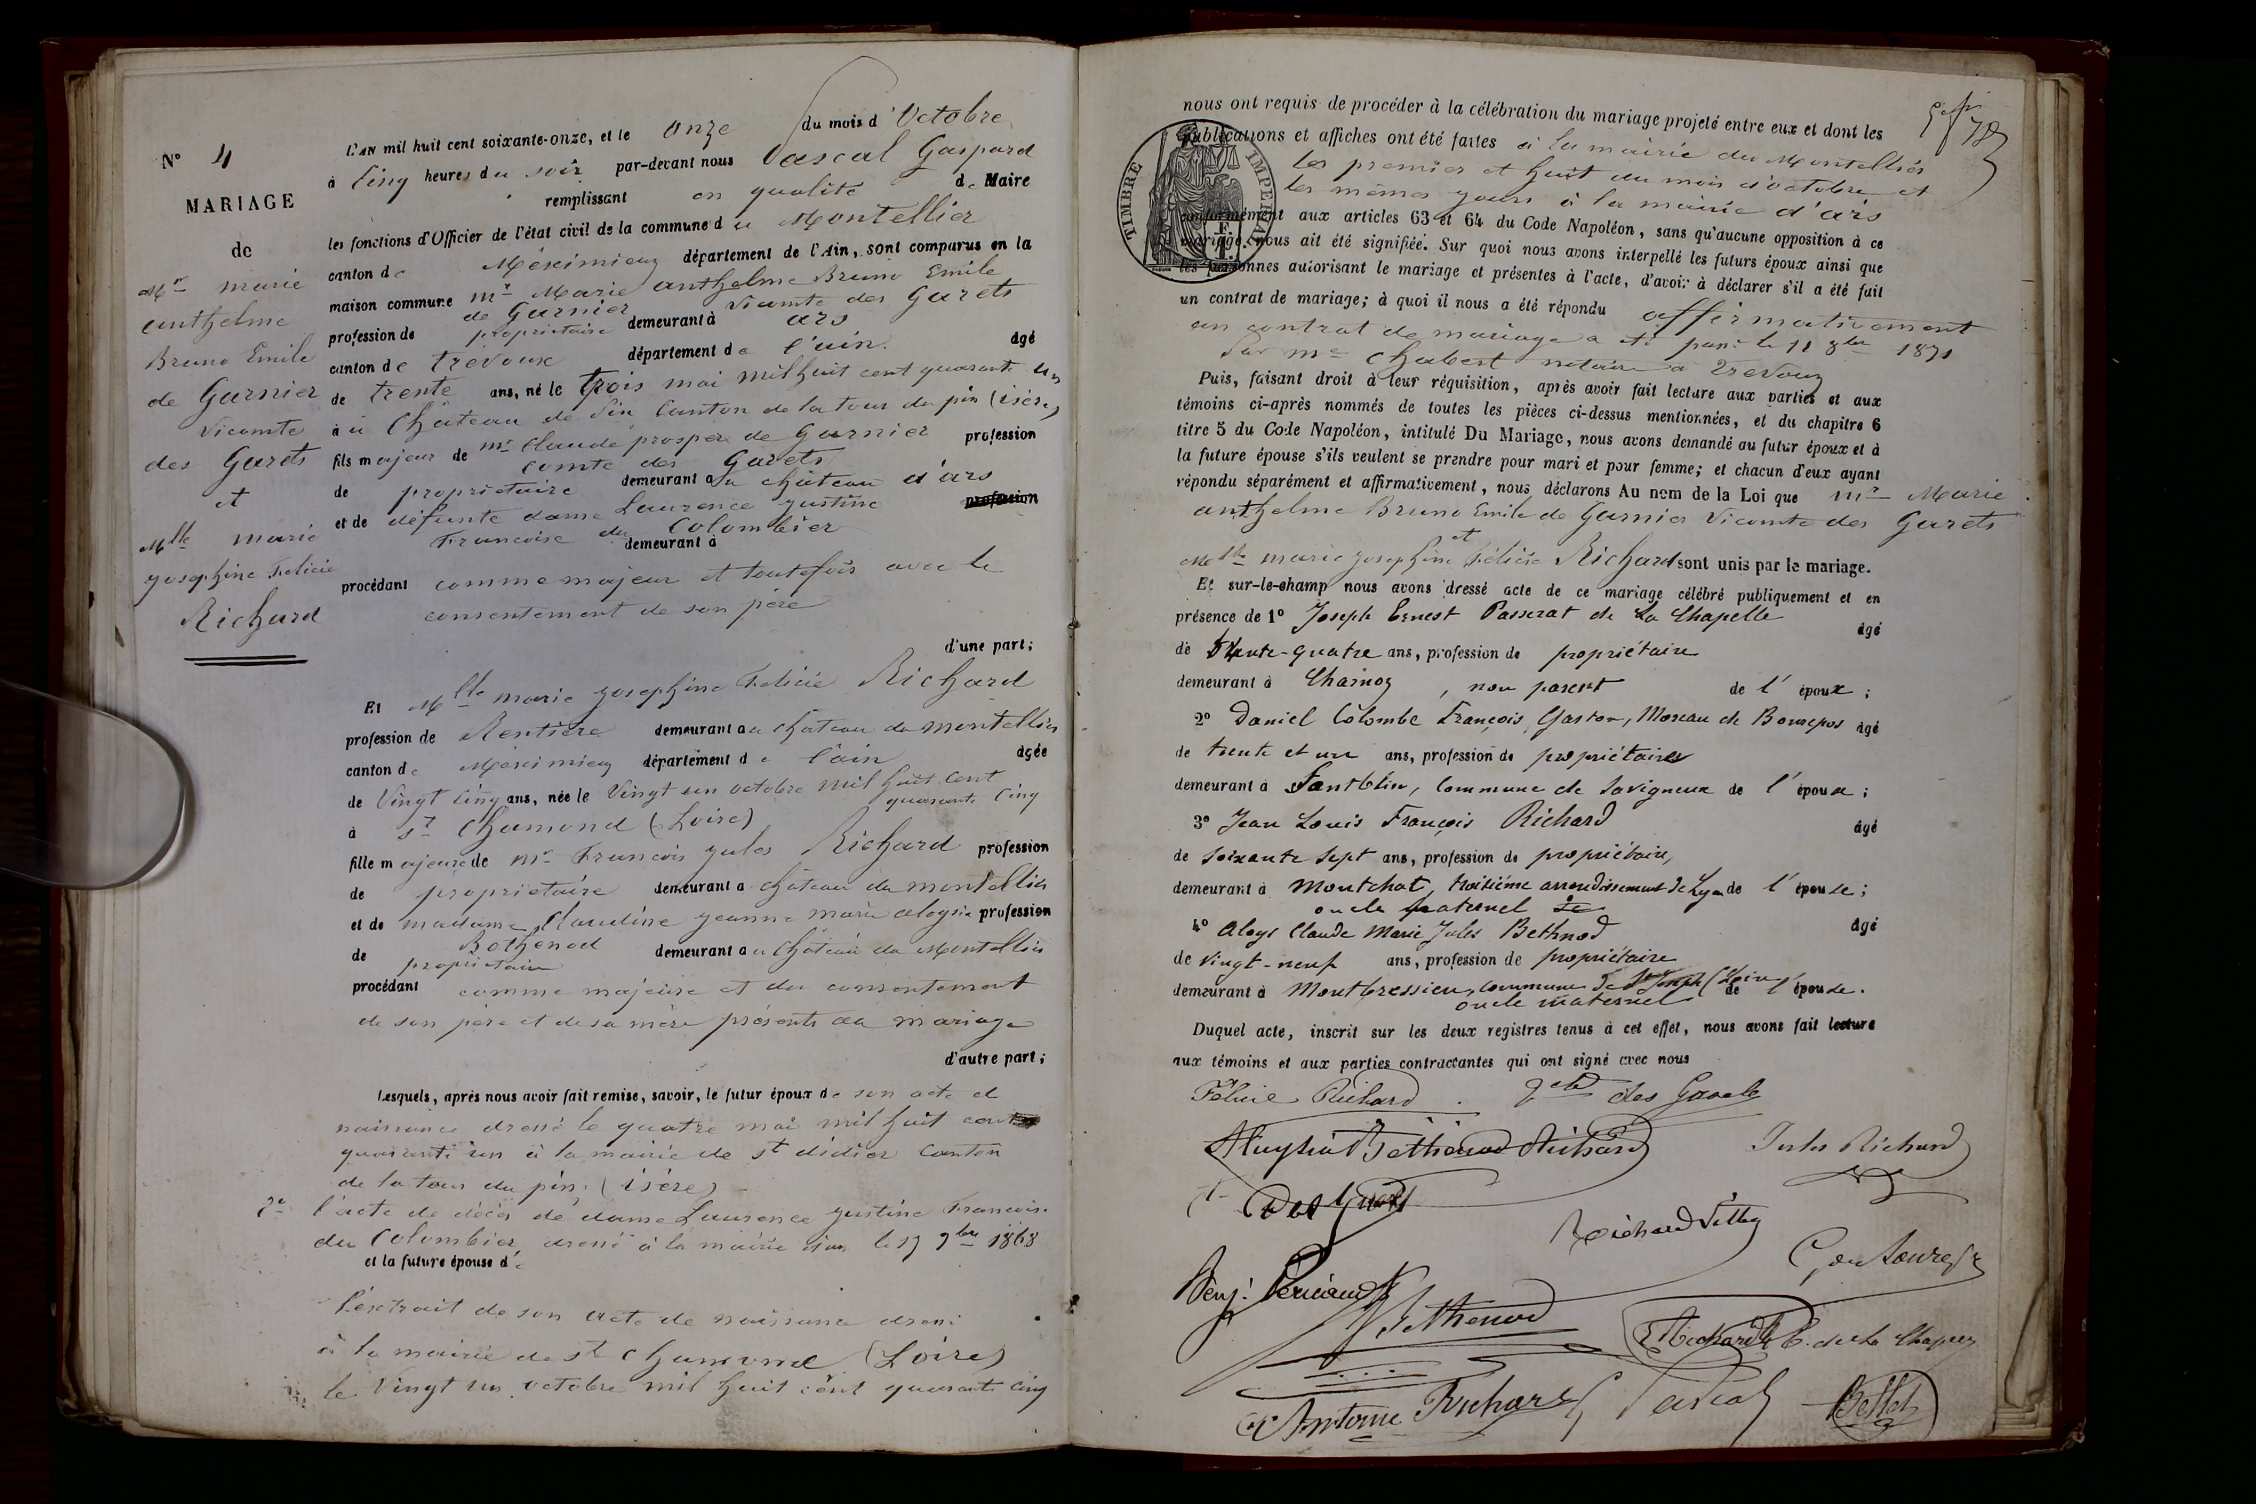 N° 4
MARIAGE
de
Mr marie
anthelme
Bruno Emile
de Garnier
Vicomte
des Garets
et
Mlle marie
josephine Felicie
Richard
L'AN mil huit cent soixante-onze, et le onze du mois d'Octobre
à Cinq heures du soir par-devant nous Pascal Gaspard
remplissant en qualité de Maire
les fonctions d'Officier de l'état civil de la commune du Montellier
canton de Méximieux département de l'Ain, sont comparus en la
maison commune mr Marie anthelme Bruno Emile
de Garnier Vicomte des Garets
profession de propriétaire demeurant à ars
canton de trevoux département de l'ain. âgé
de trente ans, né le trois mai mil huit cent quarante un
à Château de Canton de la tour du pin (isère)
fils majeur de mr Claude prosper de Garnier profession
comte des Garets
de propriétaire demeurant au château d'ars
et de défunte dame Laurence justine profession
Francoise du Colombier
demeurant à
procédant comme majeur et toutefois avec le
consentement de son père
d'une part;
Et Mlle marie josephine Felicie Richard
profession de Rentière demeurant au château du montellier
canton de Méximieux département de l'ain âgée
de Vingt cinq ans, née le Vingt un octobre mil huit cent
quarante cinq
à st Chamond (Loire)
fille majeure de mr Francois jules Richard profession
de propriétaire demeurant a château du montellier
et de madame Claudine jeanne marie aloysia profession
Bethenod
de propriétaire demeurant au Château du Montellier
procédant comme majeure et du consentement
de son père et de sa mère présents au mariage
d'autre part;
Lesquels, après nous avoir fait remise, savoir, le futur époux de son acte de
naissance dressé le quatre mai mil huit cent
quarante un à la mairie de st didier Canton
de la tour du pin (isère)
2° l'acte de décès de dame Laurence justine Francoise
du Colombier dressé à la mairie le 19 9bre 1868
et la future épouse de
l'extrait de son acte de naissance dressé
à la mairie de st Chamond (Loire)
le Vingt un octobre mil huit cent quarante cinq
nous ont requis de procéder à la célébration du mariage projeté entre eux et dont les
publications et affiches ont été faites à la mairie du Montellier
les premier et huit du mois d'octobre et
les mêmes jours à la mairie d'ars
TIMBRE IMPERIAL
conformément aux articles 63 et 64 du Code Napoléon, sans qu'aucune opposition à ce
mariage nous ait été signifiée. Sur quoi nous avons interpellé les futurs époux ainsi que
les personnes autorisant le mariage et présentes à l'acte, d'avoir à déclarer s'il a été fait
un contrat de mariage; à quoi il nous a été répondu affirmativement
un contrat de mariage a été passé le 11 8bre 1871
Par me Chabert notaire à Trevoux
Puis, faisant droit à leur réquisition, après avoir fait lecture aux parties et aux
témoins ci-après nommés de toutes les pièces ci-dessus mentionnées, et du chapitre 6
titre 5 du Code Napoléon, intitulé Du Mariage, nous avons demandé au futur époux et à
la future épouse s'ils veulent se prendre pour mari et pour femme; et chacun d'eux ayant
répondu séparément et affirmativement, nous déclarons Au nom de la Loi que mr Marie
anthelme Bruno Emile de Garnier Vicomte des Garets
et
Melle marie josephine Félicie Richard sont unis par le mariage.
Et sur-le-champ nous avons dressé acte de ce mariage célébré publiquement et en
présence de 1° Joseph Ernest Passerat de La Chapelle âgé
de trente-quatre ans, profession de propriétaire
demeurant à Charnoz, non parent de l'époux;
2° Daniel Colombe François Gaston, Moreau de Bonrepos âgé
de trente et un ans, profession de propriétaire
demeurant à Fontblin, commune de Savigneux de l'époux;
3° Jean Louis François Richard âgé
de soixante sept ans, profession de propriétaire,
demeurant à Montchat, troisième arrondissement de Lyon de l'épouse;
oncle paternel
4° Aloys Claude Marie Jules Bethnod âgé
de vingt-neuf ans, profession de propriétaire
demeurant à Montbressieu, commune de St Joseph (Loire) de l'épouse.
oncle maternel
Duquel acte, inscrit sur les deux registres tenus à cet effet, nous avons fait lecture
aux témoins et aux parties contractantes qui ont signé avec nous
Félicie Richard Vcte des Garets
Aluysia Bethenod Richard Jules Richard
Des Garets
Richard Vitton
Benj.
Bethenod
E. de La Chapelle
Antoine Richard G Pascal Bellet